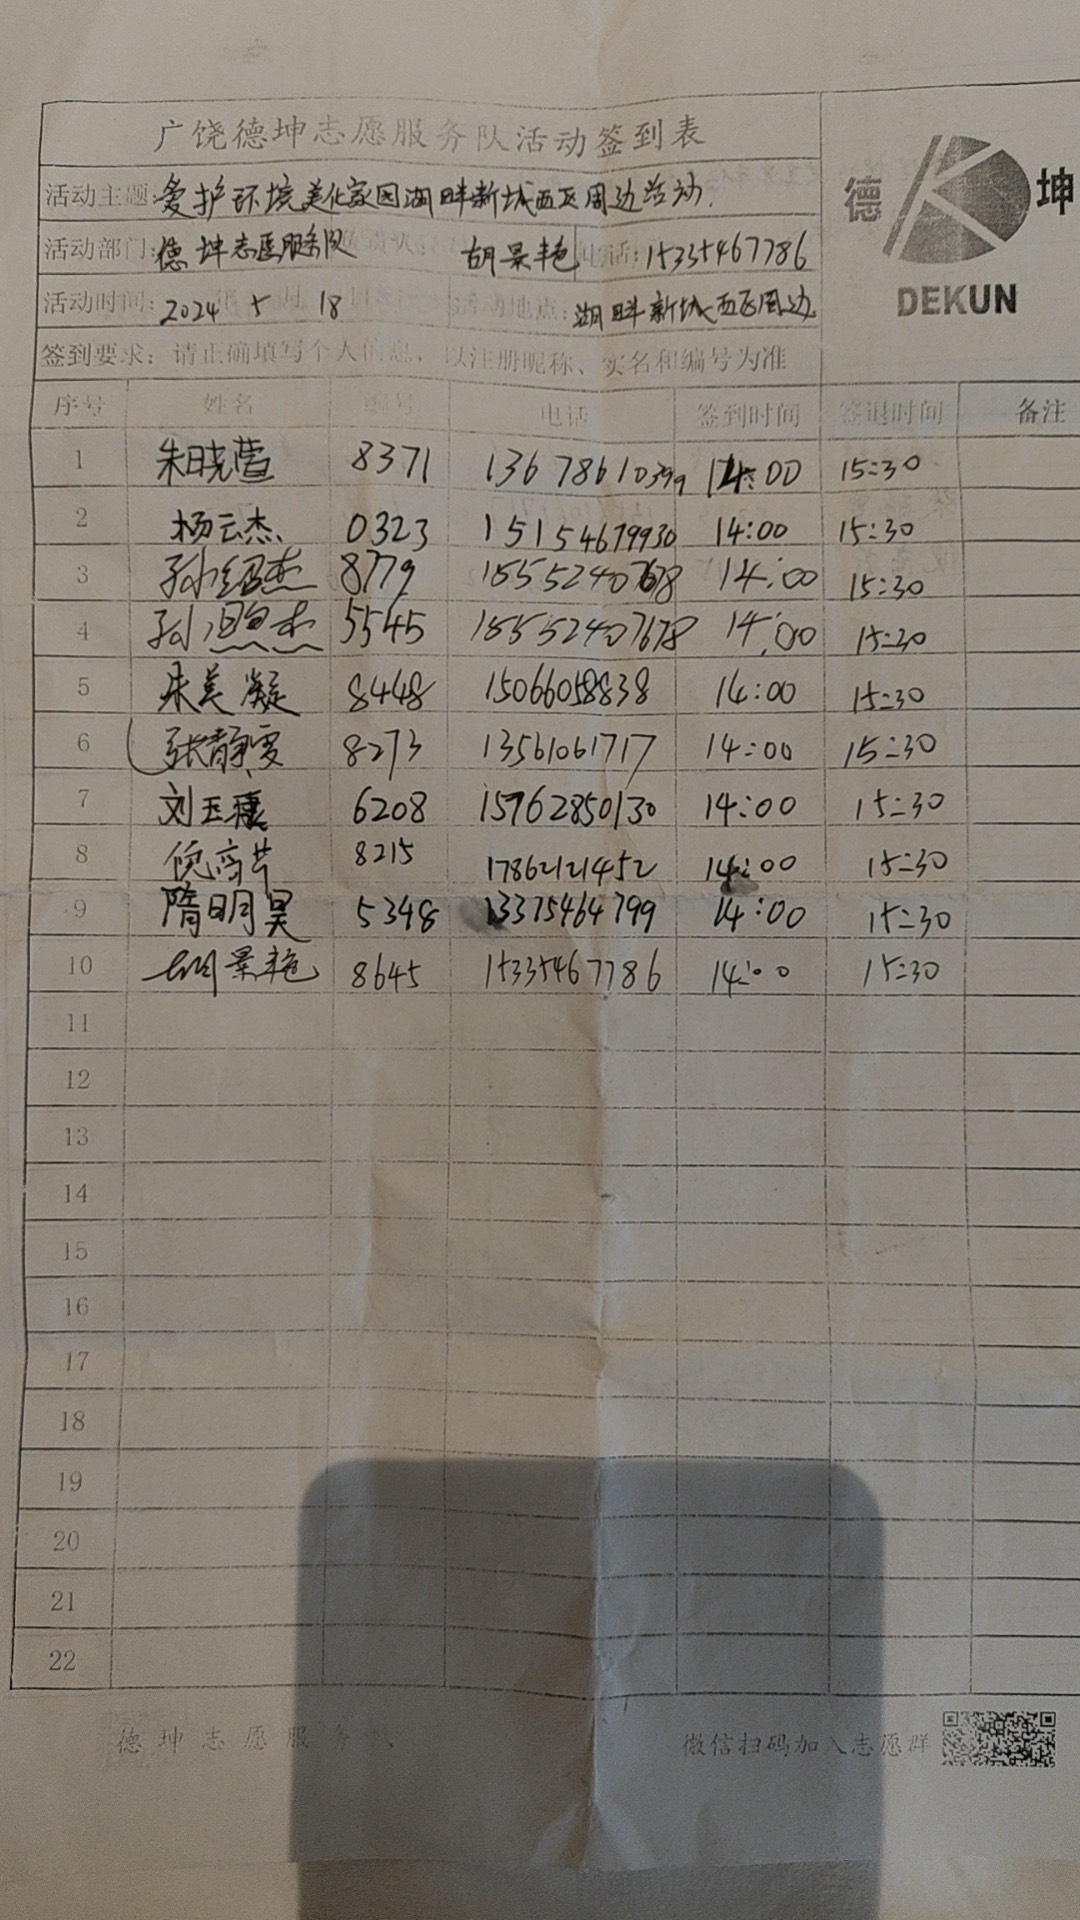 广饶德坤志愿服务队活动签到表
德 坤
DEKUN
活动主题:爱护环境美化家园湖畔新城西区周边活动.
活动部门:德坤志愿服务队 胡景艳 电话:15335467786
活动时间:2024 5 18 活动地点:湖畔新城西区周边
签到要求:请正确填写个人信息,以注册昵称、实名和编号为准
序号 姓名 编号 电话 签到时间 签退时间 备注
1 朱晓莹 8371 13678610399 14:00 15:30
2 杨云杰 0323 15154679930 14:00 15:30
3 孙绍杰 8779 18552407678 14:00 15:30
4 孙照杰 5545 18552407678 14:00 15:30
5 朱美凝 8448 15066058838 14:00 15:30
6 张静雯 8273 13561061717 14:00 15:30
7 刘玉 6208 15762850130 14:00 15:30
8 倪 8215 17862121452 14:00 15:30
9 隋明昊 5348 13375464799 14:00 15:30
10 胡景艳 8645 15335467786 14:00 15:30
11
12
13
14
15
16
17
18
19
20
21
22
德坤志愿服务队 微信扫码加入志愿群